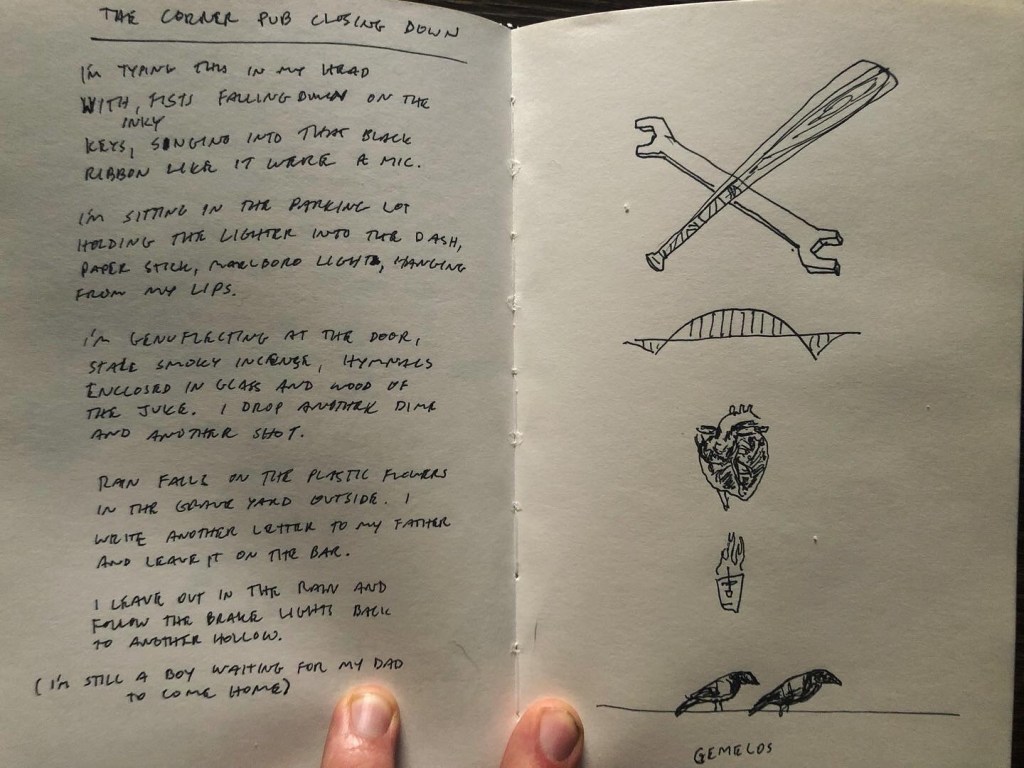 THE CORNER PUB CLOSING DOWN
I'M TYPING THIS IN MY HEAD
WITH, FISTS FALLING DOWN ON THE
INKY
KEYS, SINGING INTO THAT BLACK
RIBBON LIKE IT WERE A MIC.
I'M SITTING IN THE PARKING LOT
HOLDING THE LIGHTER INTO THE DASH,
PAPER STICK, MARLBORO LIGHT, HANGING
FROM MY LIPS.
I'M GENUFLECTING AT THE DOOR,
STALE SMOKY INCENSE, HYMNALS
ENCLOSED IN GLASS AND WOOD OF
THE JUKE. I DROP ANOTHER DIME
AND ANOTHER SHOT.
RAIN FALLS ON THE PLASTIC FLOWERS
IN THE GRAVE YARD OUTSIDE. I
WRITE ANOTHER LETTER TO MY FATHER
AND LEAVE IT ON THE BAR.
I LEAVE OUT IN THE RAIN AND
FOLLOW THE BRAKE LIGHTS BACK
TO ANOTHER HOLLOW.
(I'M STILL A BOY WAITING FOR MY DAD
TO COME HOME)
GEMELOS